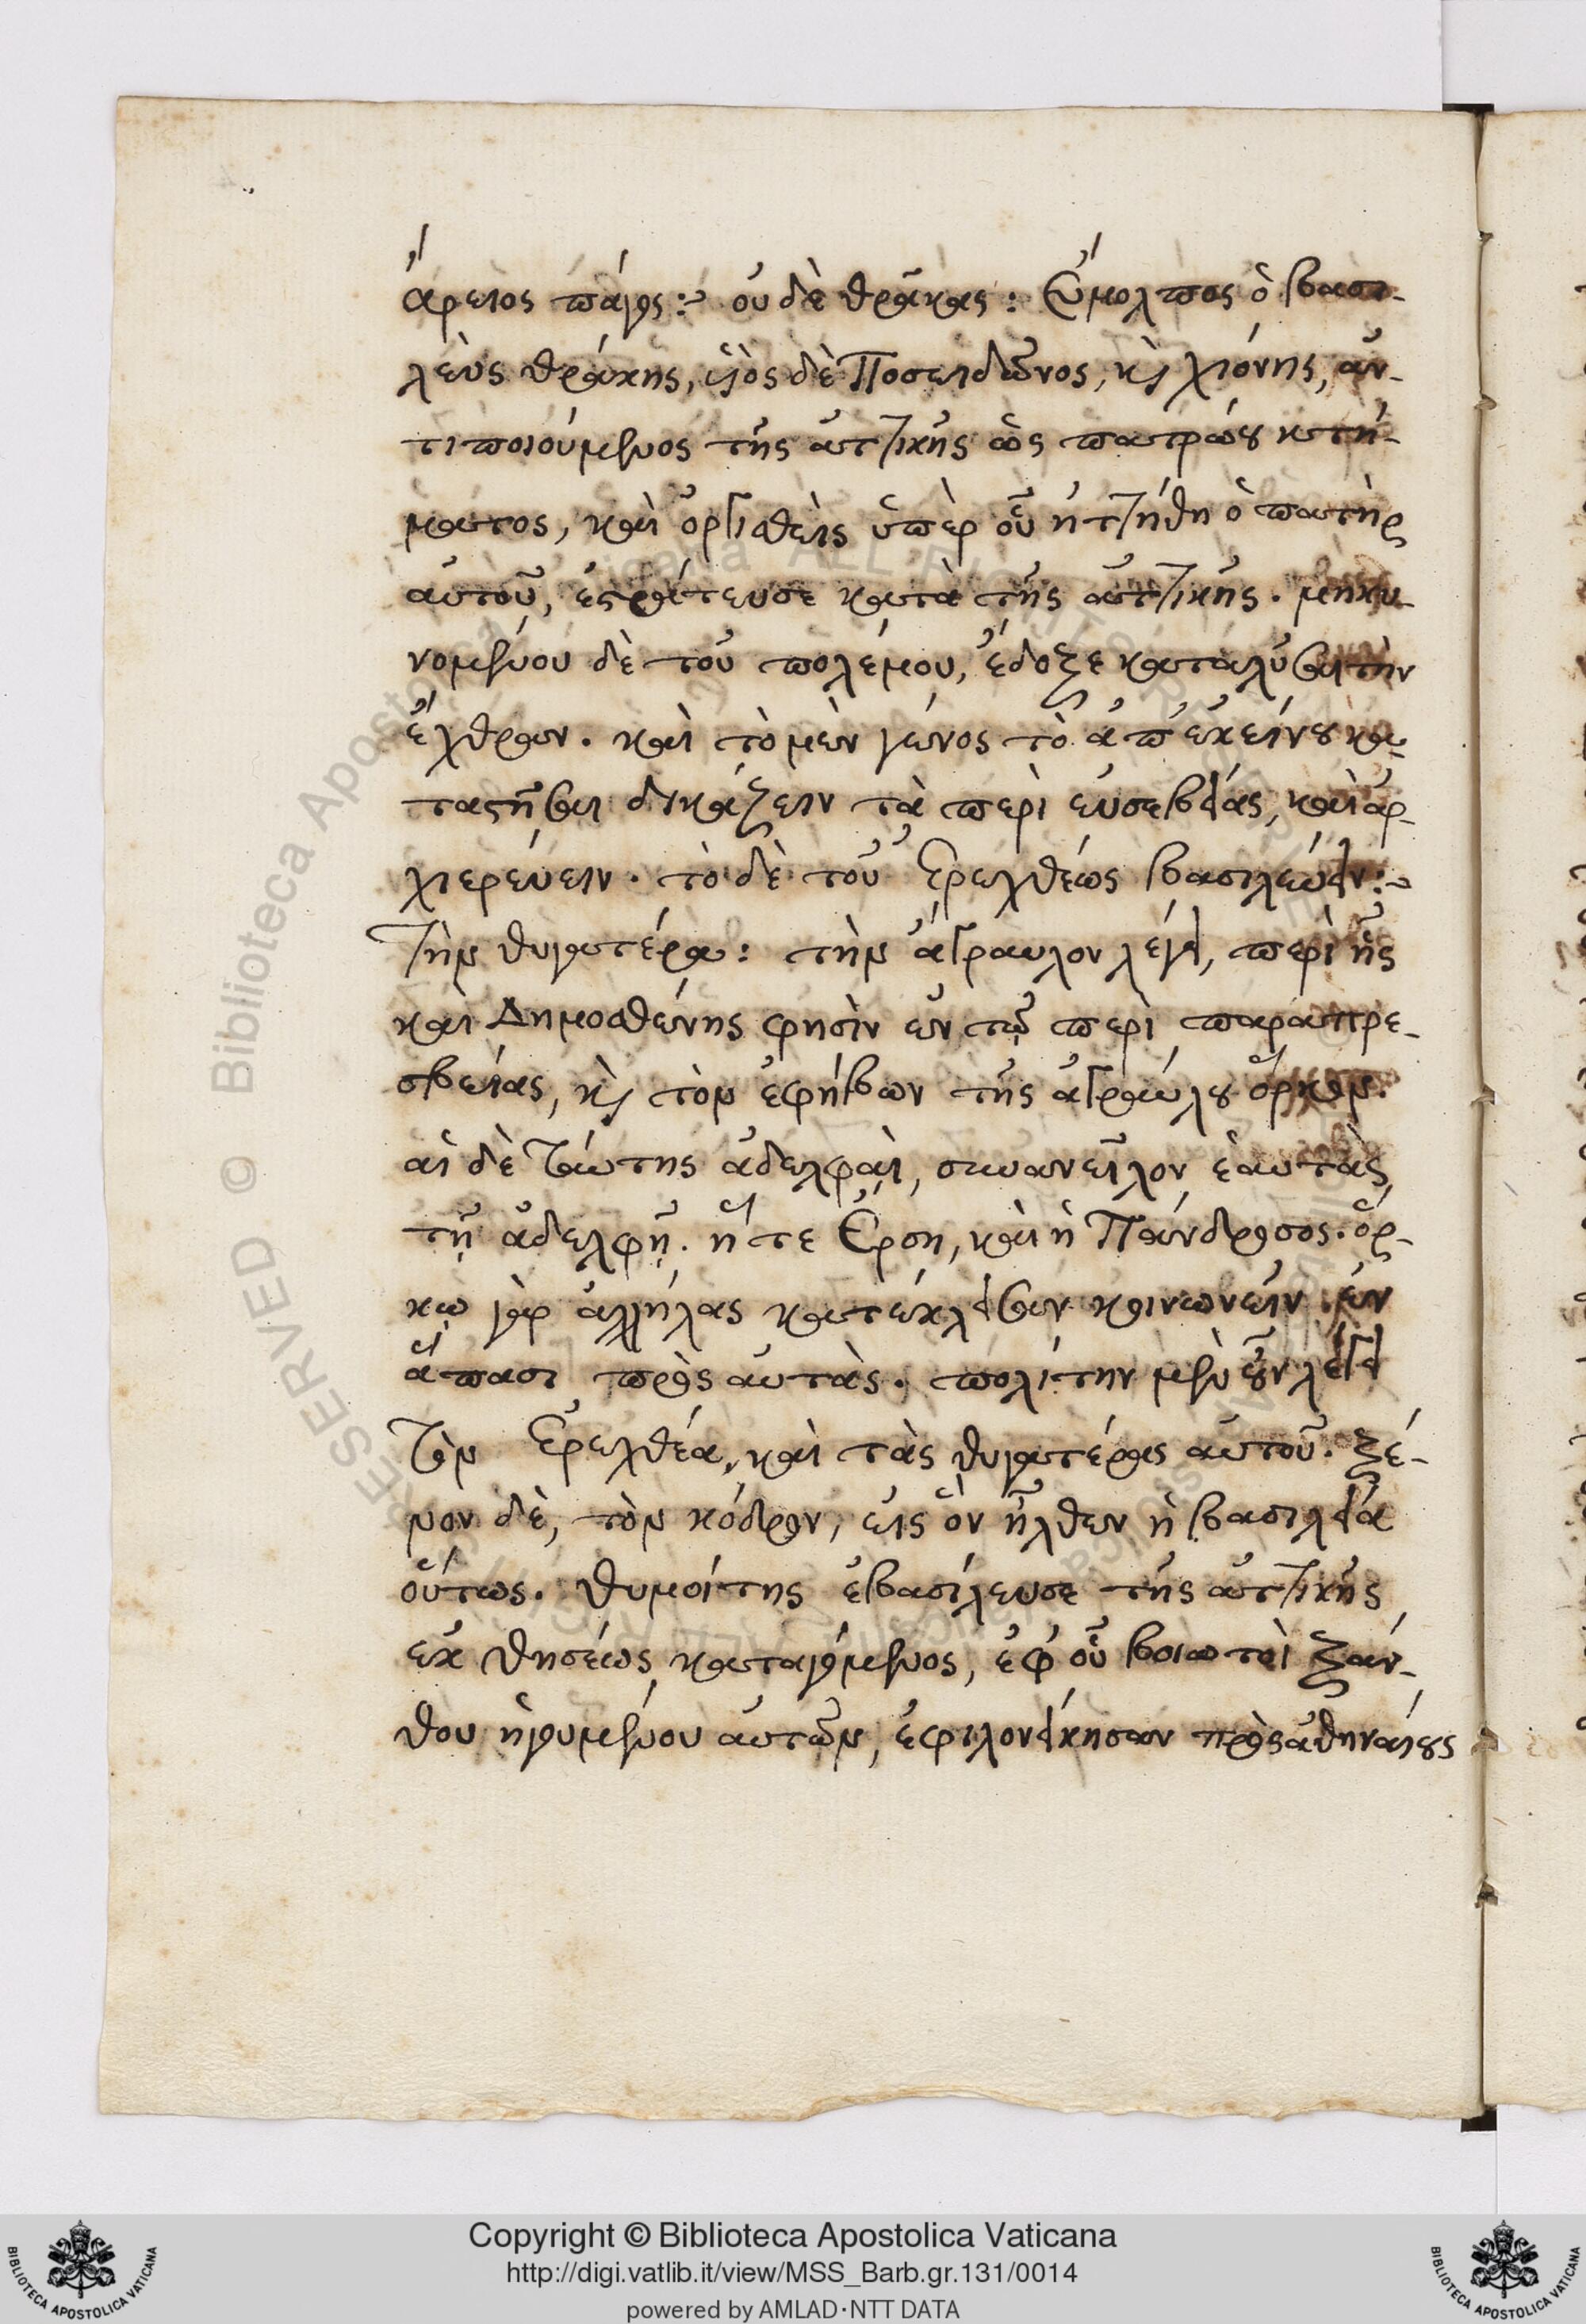 ἄρειος πάγος :~ οὐδὲ θρᾷκας : Εὔμολπος ὁ βασι-
λεὺς θράκης, ὑιὸς δὲ Ποσειδῶνος, κὶ χιόνης, ἀν-
τιποιούμενος τῆς ἀττικῆς ὡς πατρώου κτή-
ματος, καὶ ὀργισθεὶς ὑπὲρ οὗ ἡττήθη ὁ πατὴρ
αὐτοῦ, ἐστράτευσε κατὰ τῆς ἀττικῆς. μηκυ-
νομένου δὲ τοῦ πολέμου, ἔδοξε καταλῦσαι τὴν
ἔχθραν. καὶ τὸ μὲν γένος τὸ ἀπ' ἐκείνου κα-
ταστῆσαι δικάζειν τὰ περὶ εὐσεβείας, καὶ ἀρ-
χιερεύειν. τὸ δὲ τοῦ Ἐρεχθέως βασιλεύειν :~
Τὴν θυγατέρα : τὴν ἄγραυλον λέγει, περὶ ἧς
καὶ Δημοσθένης φησὶν ἐν τῷ περὶ παραπρε-
σβείας, κὶ τὸν ἐφήβων τῆς ἀγραύλου ὅρκον.
αἱ δὲ ταύτης ἀδελφαὶ, συνανεῖλον ἑαυτὰς
τῇ ἀδελφῇ. ἥ τε Ἔρση, καὶ ἡ Πάνδροσος. ὅρ-
κῳ γὰρ ἀλλήλας κατέκλεισαν κοινωνεῖν ἐν
ἅπασι πρὸς αὑτὰς. πολίτην μὲν οὖν λέγει
τὸν Ἐρεχθέα, καὶ τὰς θυγατέρας αὐτοῦ. ξέ-
νον δὲ, τὸν κόδρον, εἰς ὃν ἦλθεν ἡ βασιλεία
οὕτως. θυμοίτης ἐβασίλευσε τῆς ἀττικῆς
ἐκ θησέως καταγόμενος, ἐφ' οὗ βοιωτοὶ ξάν-
θου ἡγουμένου αὐτῶν, ἐφιλονείκησαν πρὸς ἀθηναίους
Copyright © Biblioteca Apostolica Vaticana
http://digi.vatlib.it/view/MSS_Barb.gr.131/0014
powered by AMLAD·NTT DATA